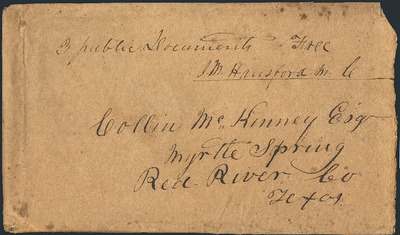 3 public Documents Free
J M Hansford M. C
Collin McKinney Esqr
Myrtle Spring
Red River Co
Texas